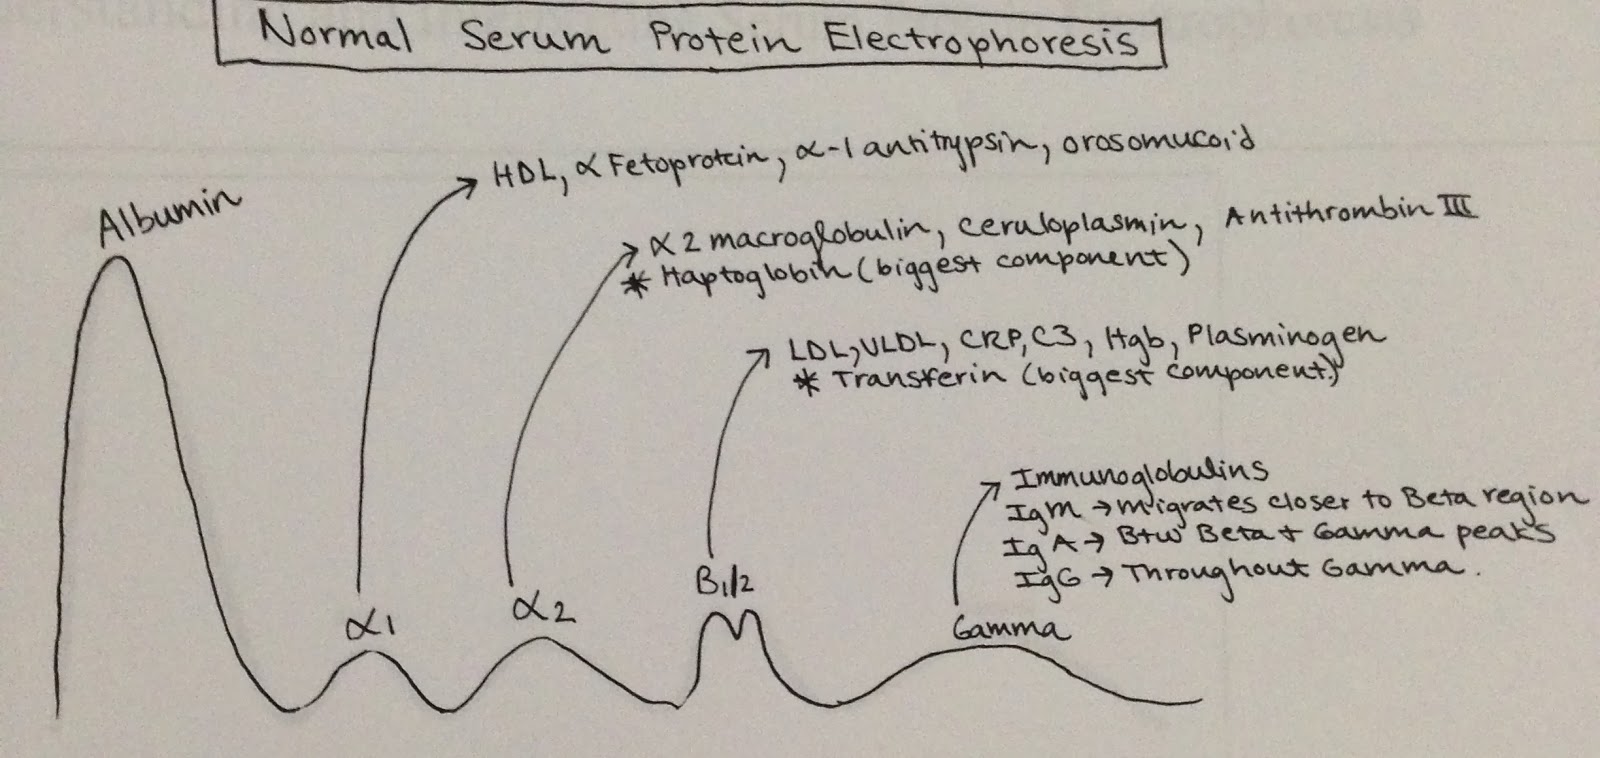 Normal Serum Protein Electrophoresis
HDL, α Fetoprotein, α-1 antitrypsin, orosomucoid
Albumin
α2 macroglobulin, ceruloplasmin, Antithrombin III
* Haptoglobin (biggest component)
LDL, VLDL, CRP, C3, Hgb, Plasminogen
* Transferin (biggest component)
Immunoglobulins
IgM → migrates closer to Beta region
IgA → Btw Beta + Gamma peaks
IgG → Throughout Gamma.
B1/2
α1
α2
Gamma